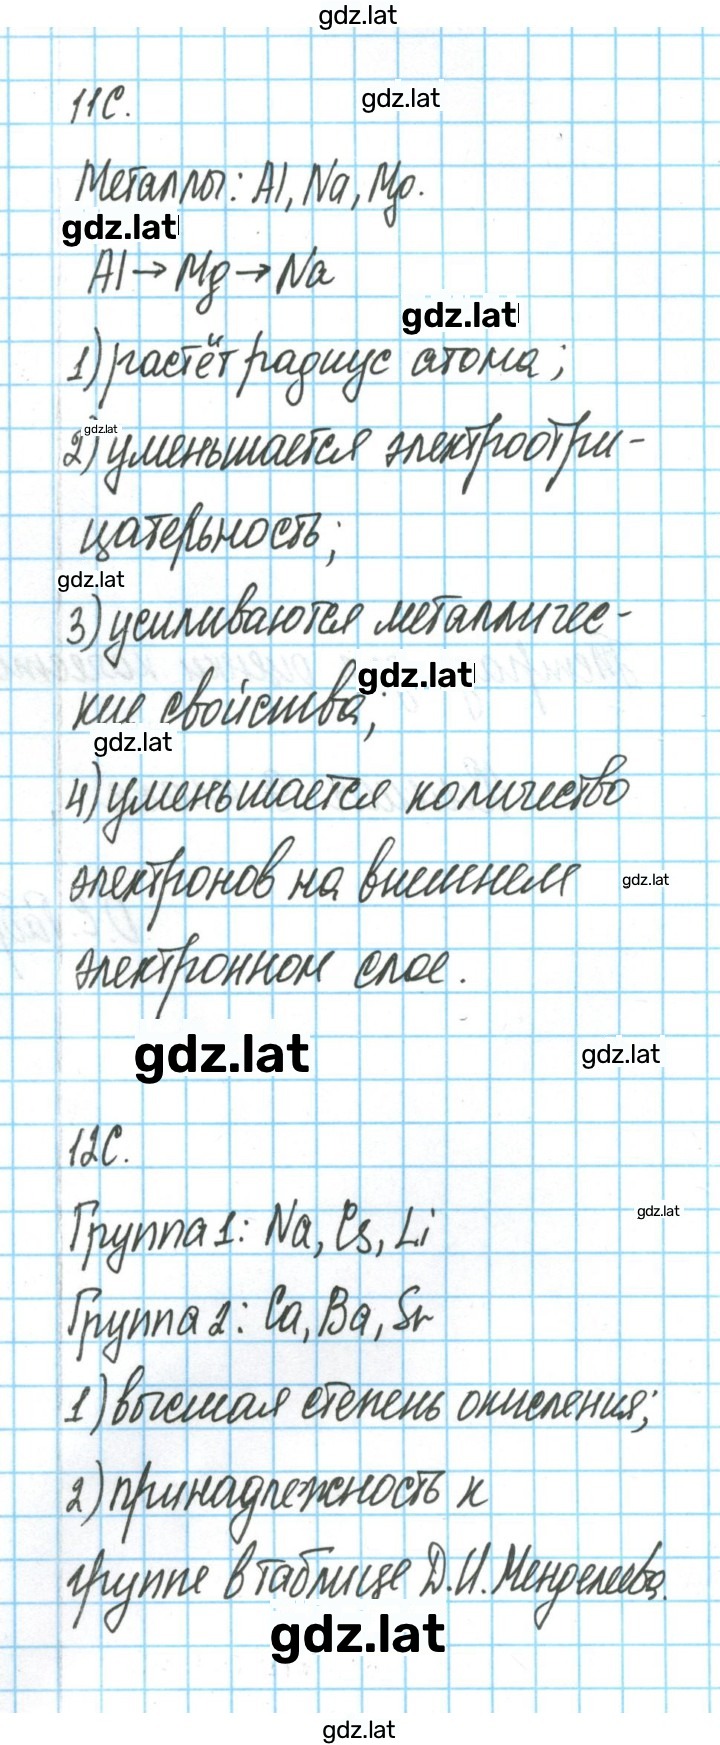 gdz.lat
11С.
gdz.lat
Металлы: Al, Na, Mg.
gdz.lat
Al → Mg → Na
gdz.lat
1) растёт радиус атома;
gdz.lat
2) уменьшается электроотри-
цательность;
gdz.lat
3) усиливаются металличес-
кие свойства;
gdz.lat
gdz.lat
4) уменьшается количество
электронов на внешнем
gdz.lat
электронном слое.
gdz.lat
gdz.lat
12С.
gdz.lat
Группа 1: Na, Cs, Li
Группа 2: Ca, Ba, Sr
1) высшая степень окисления;
2) принадлежность к
группе в таблице Д.И. Менделеева.
gdz.lat
gdz.lat